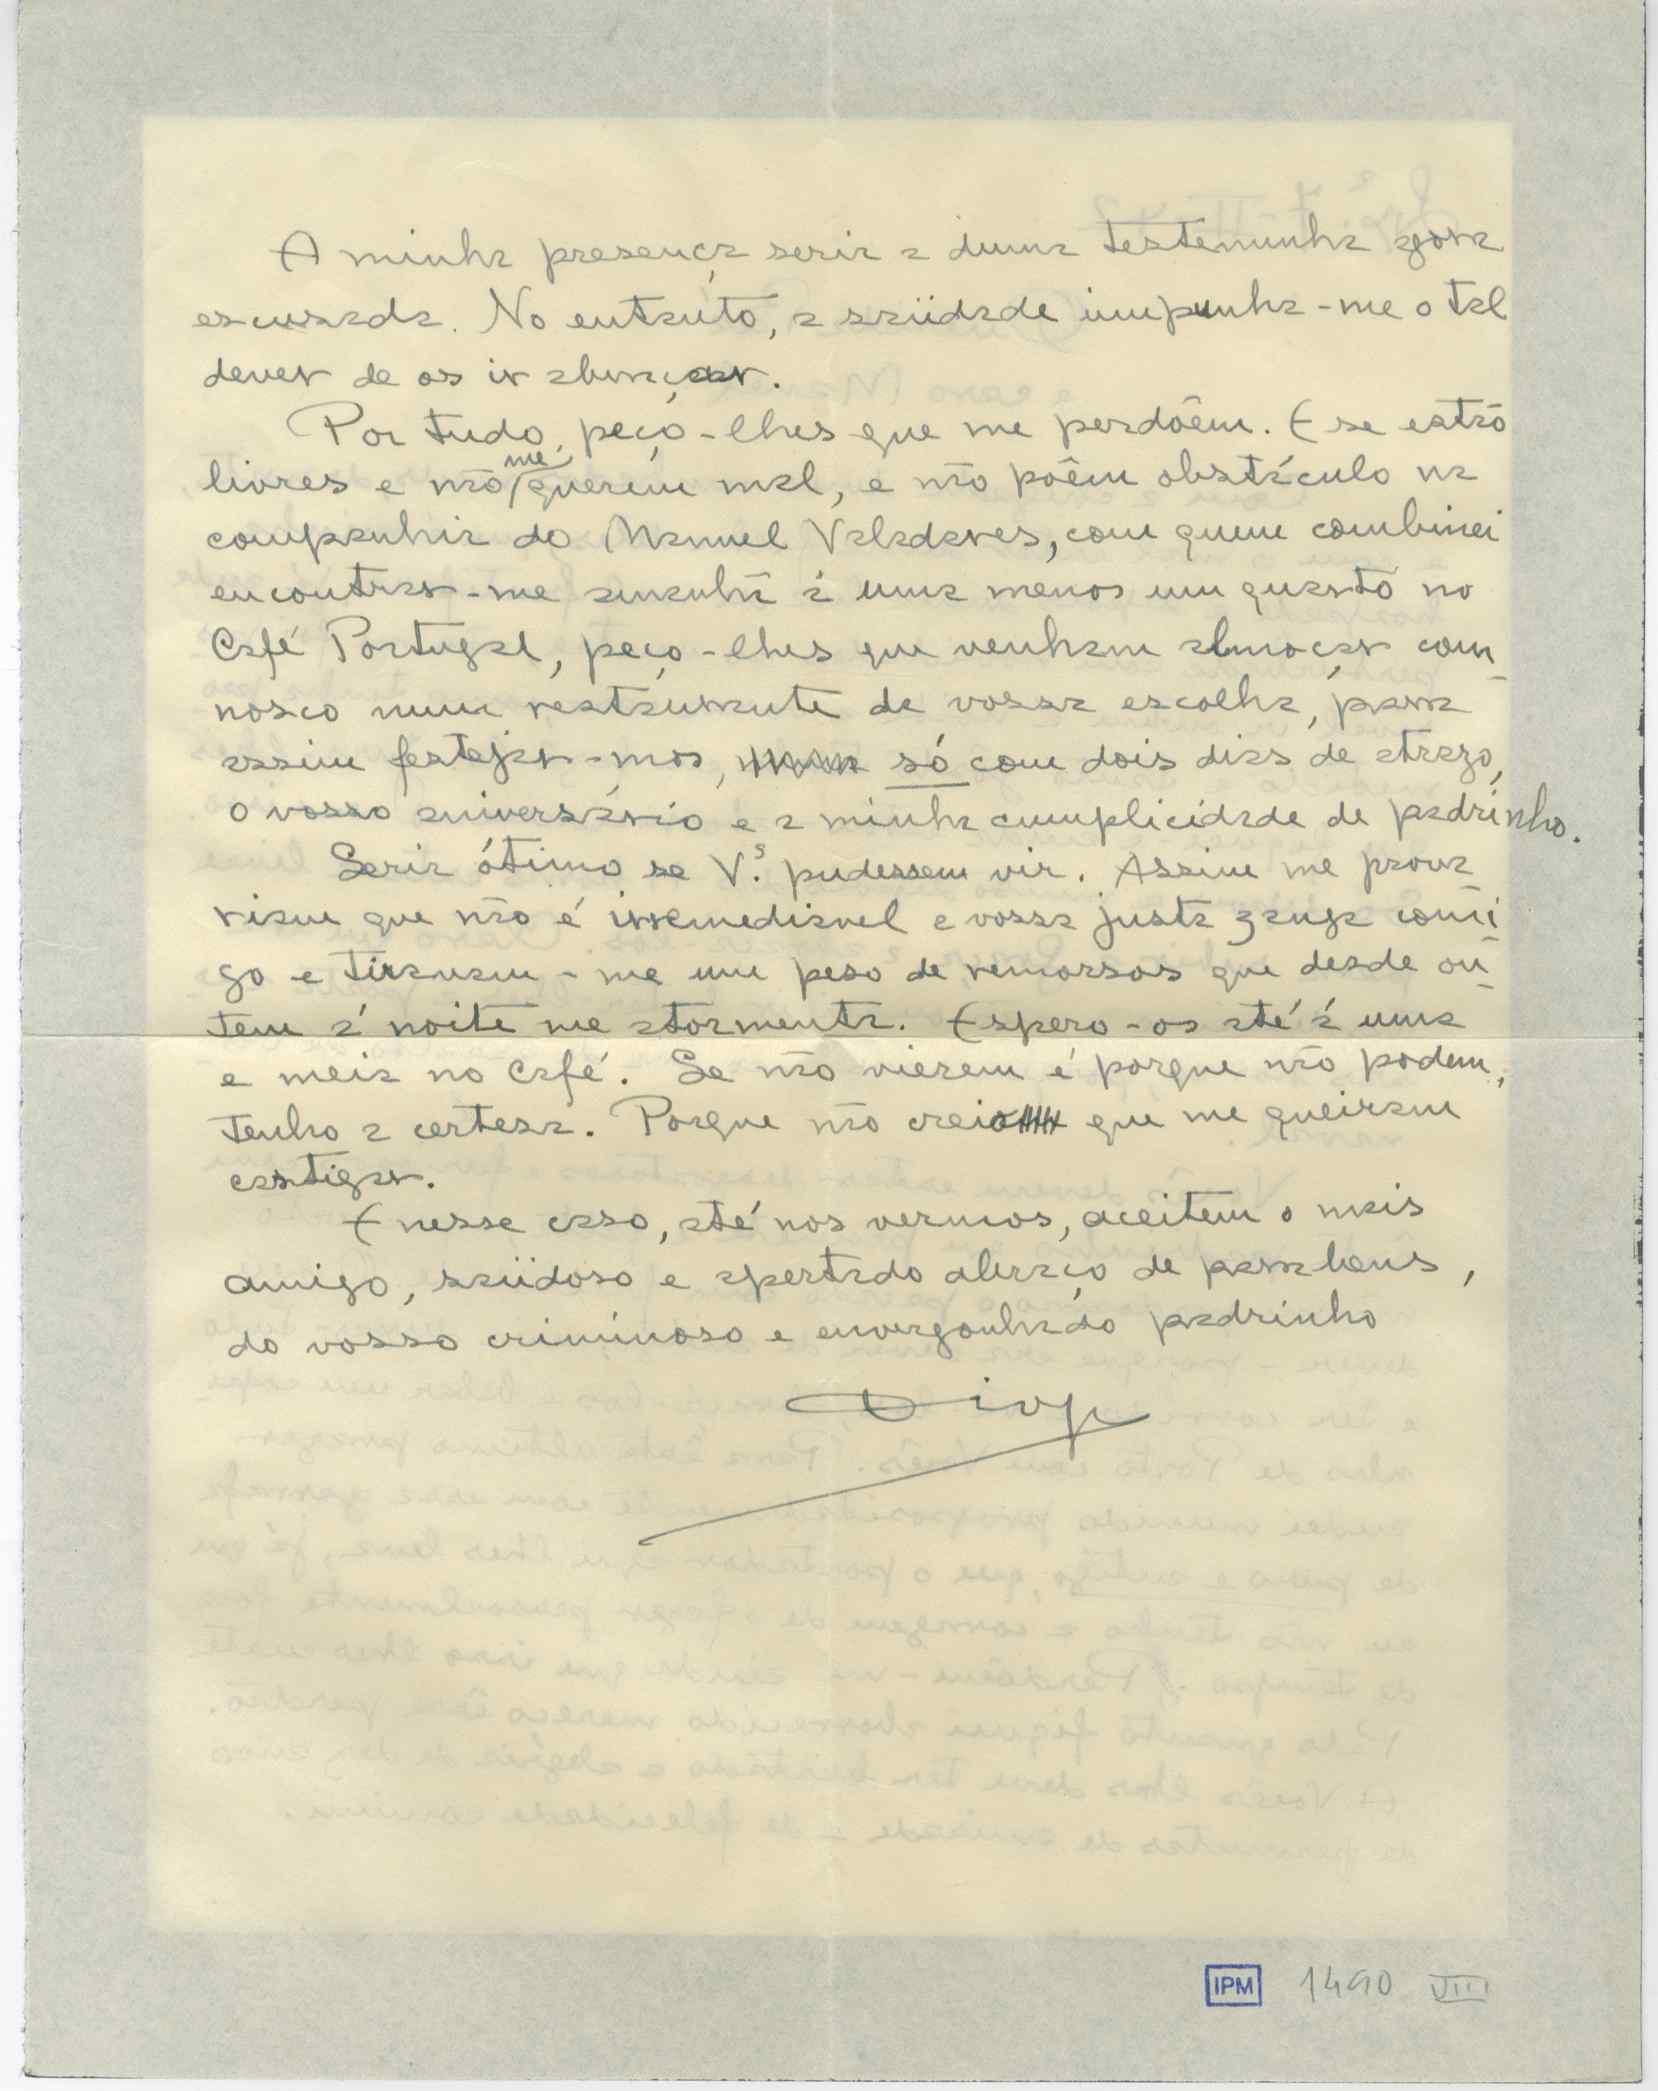 A minha presença seria a duma testemunha agora
escusada. No entanto, a saüdade impunha-me o tal
dever de os ir abraçar.
Por tudo, peço-lhes que me perdôêm. E se estão
livres e não me querem mal, e não pôêm obstáculo na
companhia do Manuel Valadares, com quem combinei
encontrar-me amanhã á uma menos um quarto no
Café Portugal, peço-lhes que venham almoçar com-
nosco num restaurante de vossa escolha, para
assim festejar-mos, só com dois dias de atrazo,
o vosso aniversário e a minha cumplicidade de padrinho.
Seria ótimo se V.s pudessem vir. Assim me prova
riam que não é irremediavel a vossa justa zanga comi
go e tiravam-me um peso de remorsos que desde on-
tem á noite me atormenta. Espero-os até á uma
e meia no Café. Se não vierem é porque não podem,
tenho a certesa. Porque não creio que me queiram
castigar.
E nesse caso, até nos vermos, aceitem o mais
amigo, saüdoso e apertado abraço de parabens,
do vosso criminoso e envergonhado padrinho
IPM 1490 VIII